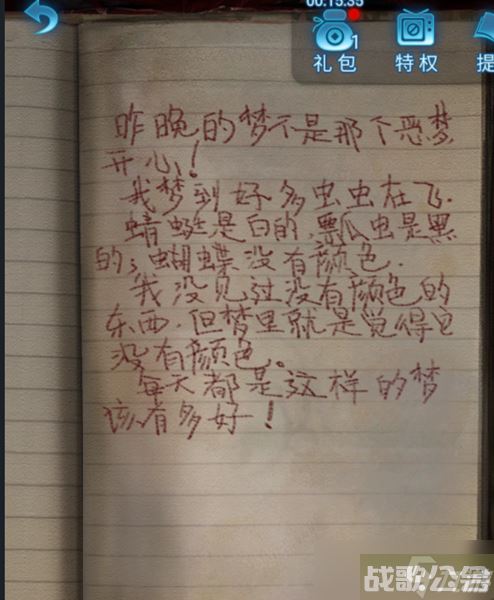 00:15:35
1
礼包
特权
提
昨晚的梦不是那个恶梦
开心!
我梦到好多虫虫在飞.
蜻蜓是白的,瓢虫是黑
的;蝴蝶没有颜色.
我没见过没有颜色的
东西.但梦里就是觉得它
没有颜色。
每天都是这样的梦
该有多好!
战歌公会